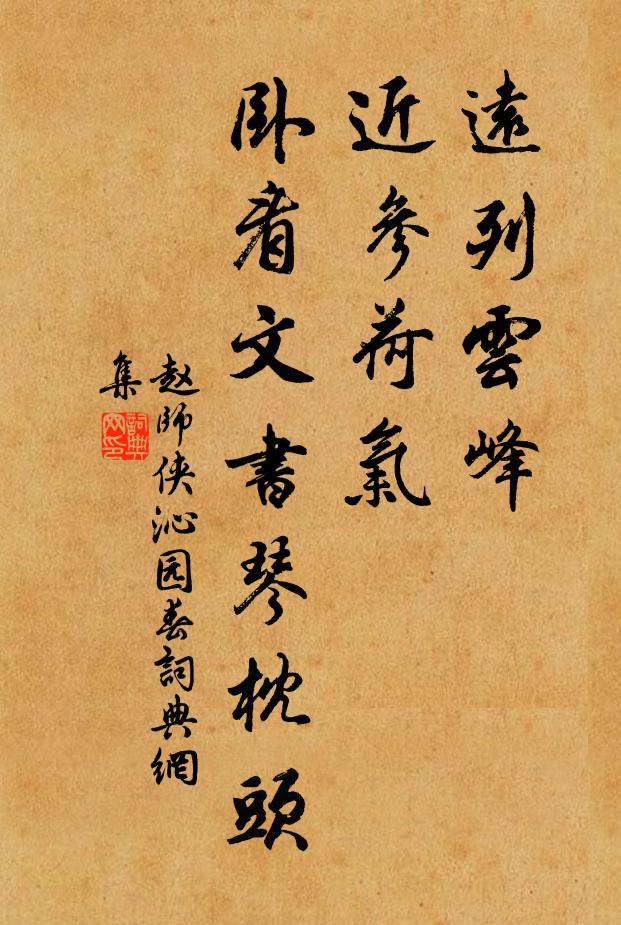 遠列雲峰
近參荷氣
卧看文書琴枕頭
赵師侠沁园春詞典網
集
詞典
网印